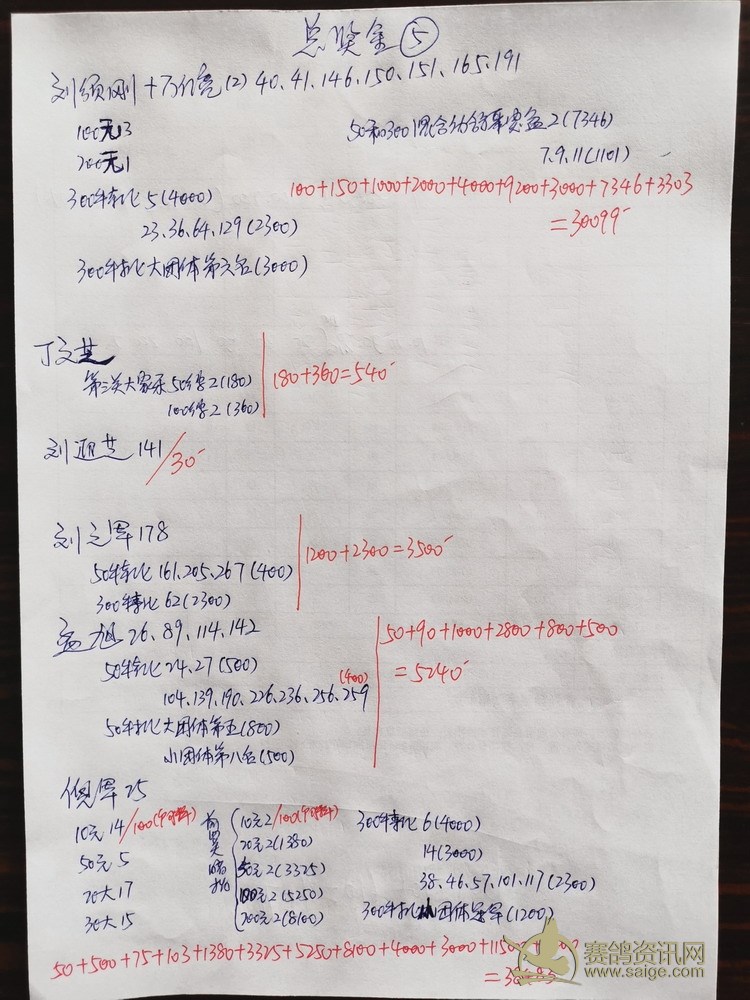 总奖金⑤
刘须刚 十万亿亮(2) 40、41、146、150、151、165、191
100无13
200无1
50和300 7346)
7、9、11(1101)
300特比5(4000)
23、36、64、129(2300)
300特比大团体第六名(3000)
100+150+1000+2000+4000+9200+3000+7346+3303
=30099
丁文芝
第三关大家乐50 2(180)
100 2(360)
180+360=540
刘迎芝141/30
刘之军178
50特比161、205、267(400)
300特比62(2300)
1200+2300=3500
孟旭26、89、114、142
50特比24、27(500)
104、139、190、226、236、256、259(400)
50特比大团体第五(800)
小团体第八名(500)
50+90+1000+2800+800+500
=5240
倪军25
10元14/100
50元5
20大17
30大15
10元2/100
20元2(1380)
50元2(3325)
100元2(5250)
200元2(8100)
300特比6(4000)
14(3000)
38、46、57、101、117(2300)
300特比小团体冠军(1200)
50+500+75+103+1380+3325+5250+8100+4000+3000+
赛鸽资讯网
www.saige.com